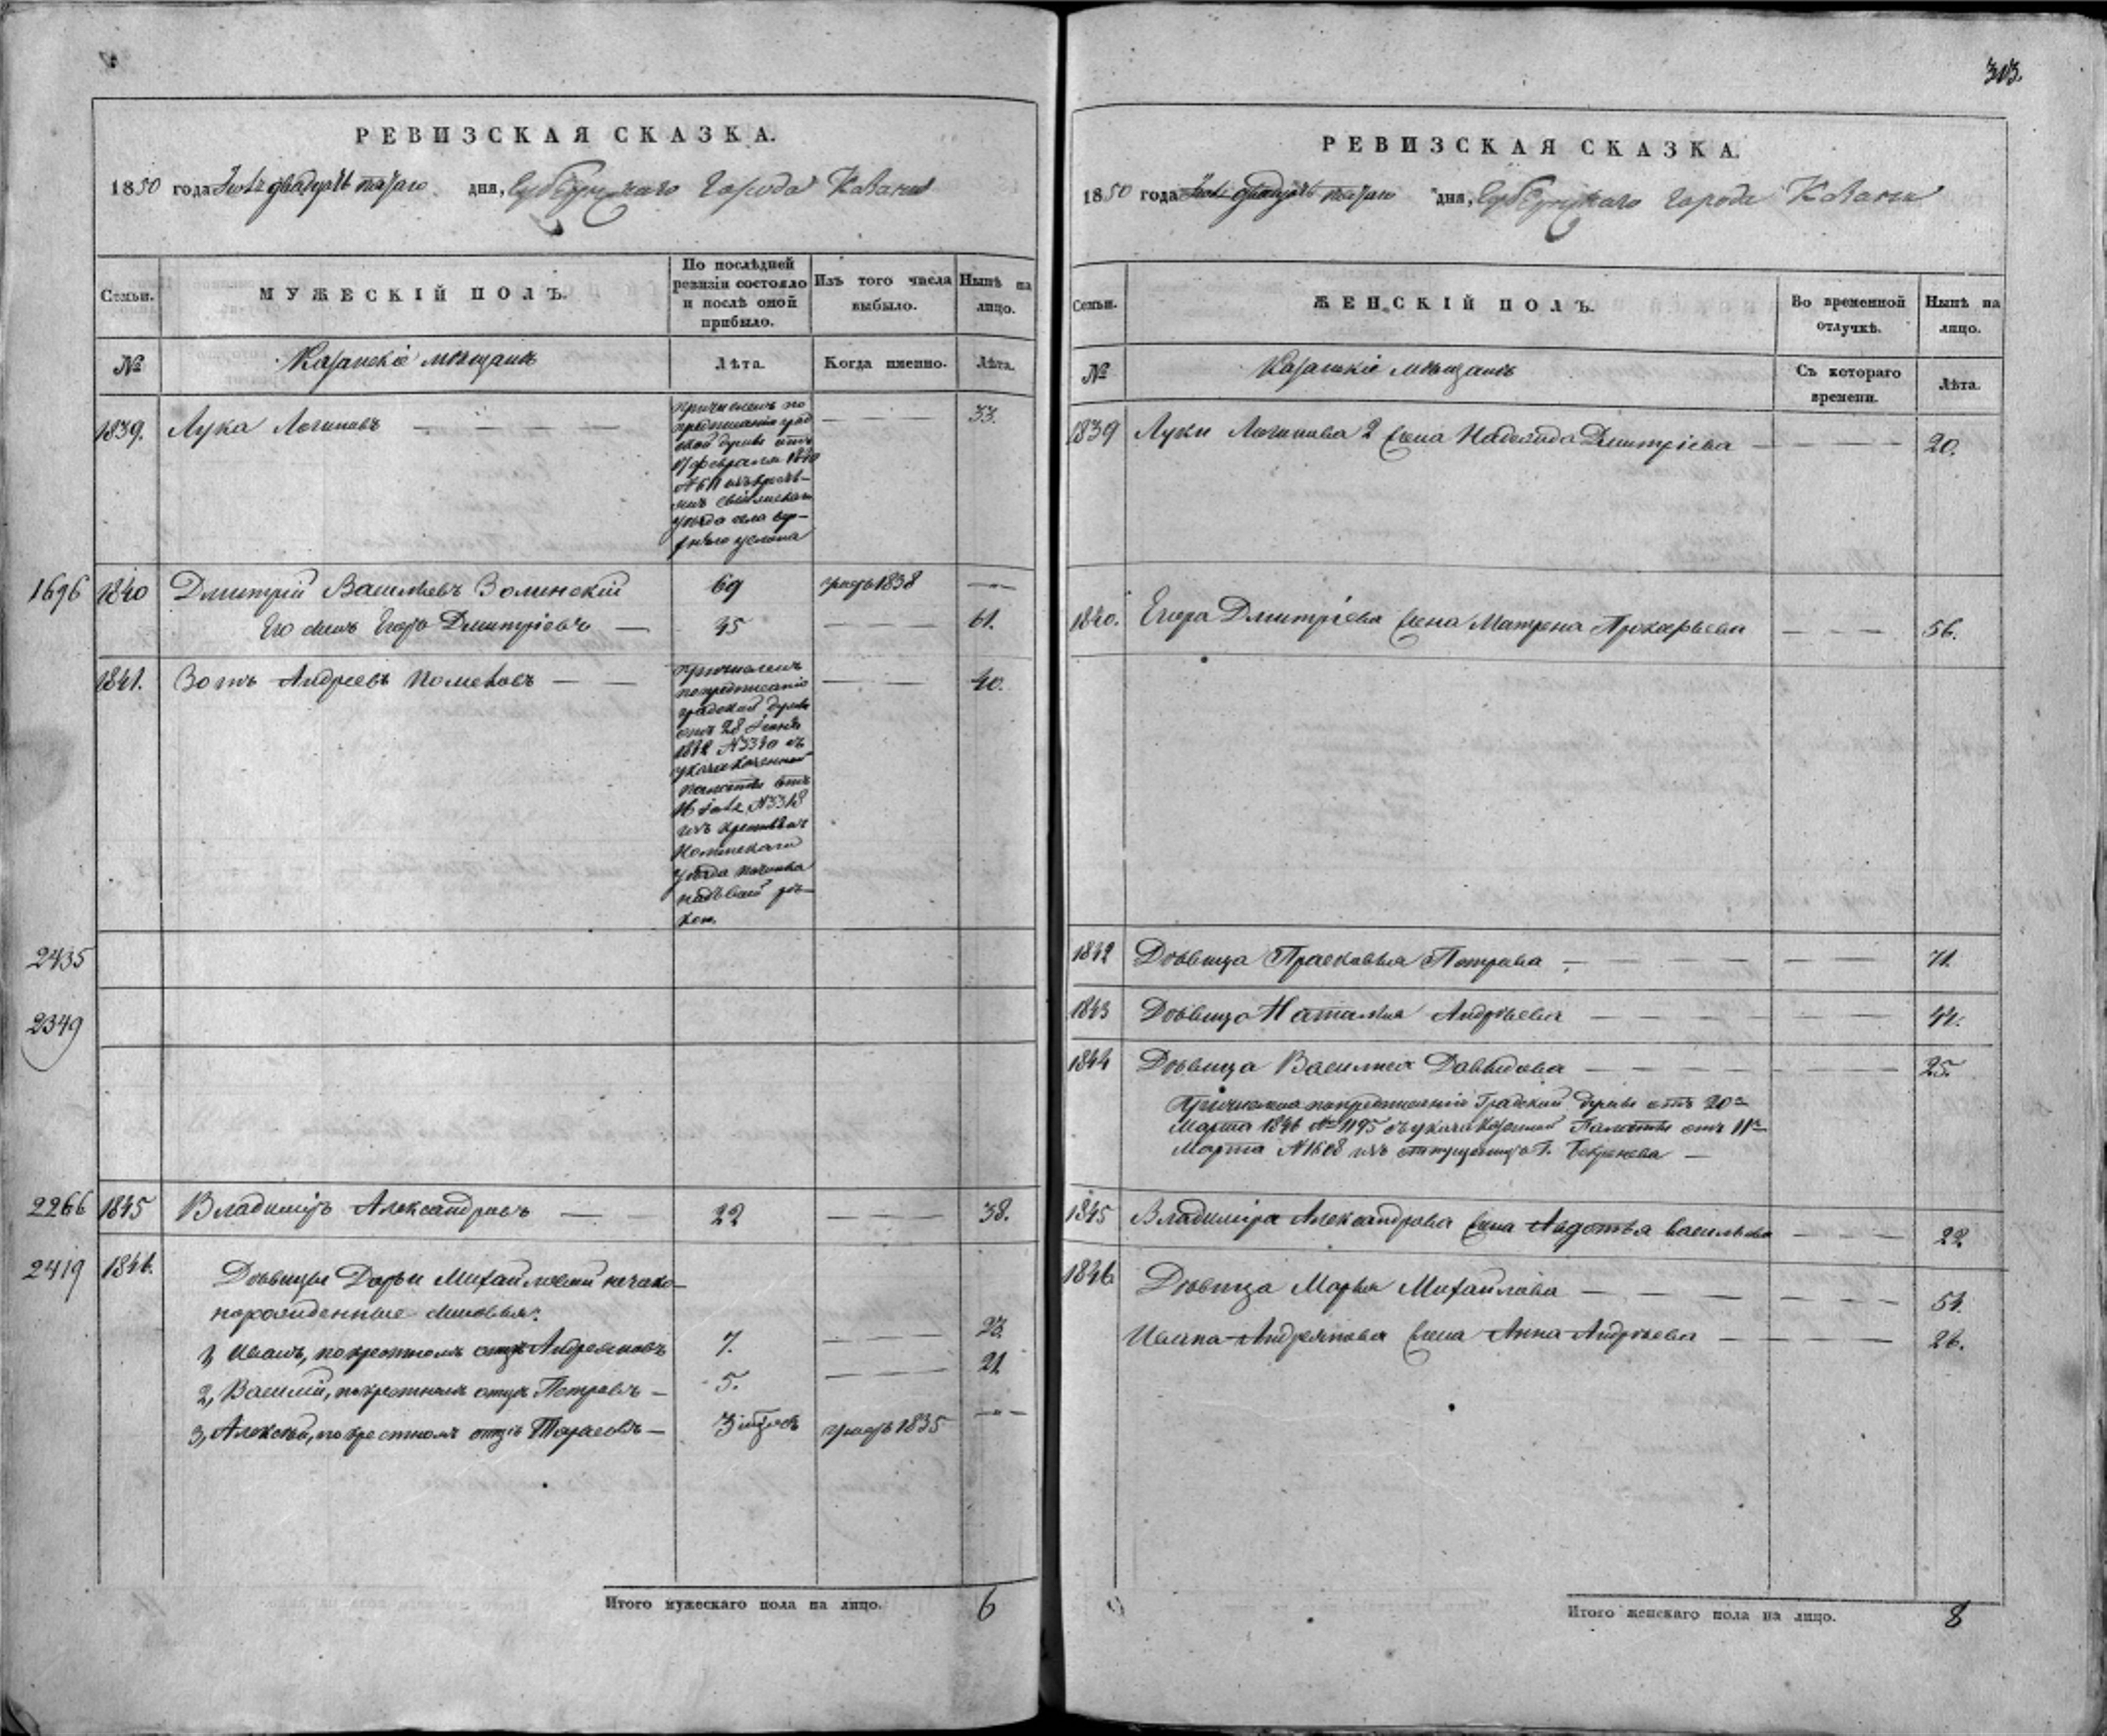 303.
РЕВИЗСКАЯ СКАЗКА.
1850 года дня, Губернскаго города Казани
Семьи. МУЖЕСКІЙ ПОЛЪ. По послѣдней ревизіи состояло и послѣ оной прибыло. Изъ того числа выбыло. Нынѣ на лицо.
№ Казанскіе мѣщане Лѣта. Когда именно. Лѣта.
1839. Лука Логиновъ 33.
причисленъ по
предписанію град
ской думы отъ
17 февраля
уѣзда села вер-
1696 1840 Дмитрій Васильевъ Золинскій 69 умеръ 1838
Его сынъ Егоръ Дмитріевъ 45 61.
1841. Зотъ Андреевъ 40.
причисленъ
по предписанію
градской думы
отъ 28
указа казенной
палаты отъ
изъ крестьянъ
уѣзда починка
надъ рѣ-
кою.
2435
2349
2266 1845 Владиміръ Александровъ 22 38.
2419 1846.
Дѣвицы Дарьи Михайловой незако-
норожденные сыновья:
1, Иванъ, по крестномъ отцѣ Андреяновъ 7. 23.
2, Василій, по крестномъ отцѣ Петровъ 5. 21
3, Алексѣй, по крестномъ отцѣ Тарасовъ умеръ 1835
Итого мужескаго пола на лицо. 6
РЕВИЗСКАЯ СКАЗКА.
1850 года дня, Губернскаго города Казани
Семьи. ЖЕНСКІЙ ПОЛЪ. Во временной отлучкѣ. Нынѣ на лицо.
№ Казанскіе мѣщане Съ котораго времени. Лѣта.
1839 Луки Логинова 2 жена Надежда Дмитріева 20.
1840. Егора Дмитріева жена Матрена Прокофьева 56.
1842 Дѣвица Прасковья Петрова 71.
1843 Дѣвица Наталья Андрѣева 44.
1844 Дѣвица Василиса Давыдова 25.
Причислена по предписанію Градской думы отъ 20го
Марта 1846 № 1195 съ указа Казенной Палаты отъ 11го
Марта № 1608 изъ
1845 Владиміра Александрова жена Авдотья Васильева 22.
1846 Дѣвица Марья Михайлова 51.
Ивана Андреянова жена Анна Андрѣева 26.
Итого женскаго пола на лицо. 8